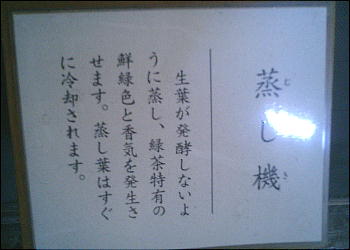 蒸し機
むき
生葉が発酵しないよ
うに蒸し、緑茶特有の
鮮緑色と香気を発生さ
せます。蒸し葉はすぐ
に冷却されます。